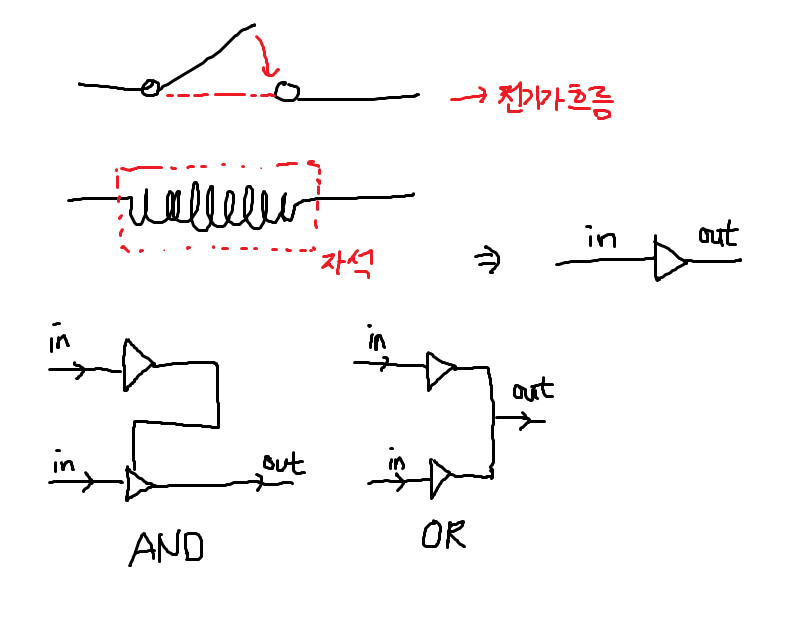 전기가흐름
자석
in
out
in
in
out
AND
in
in
out
OR